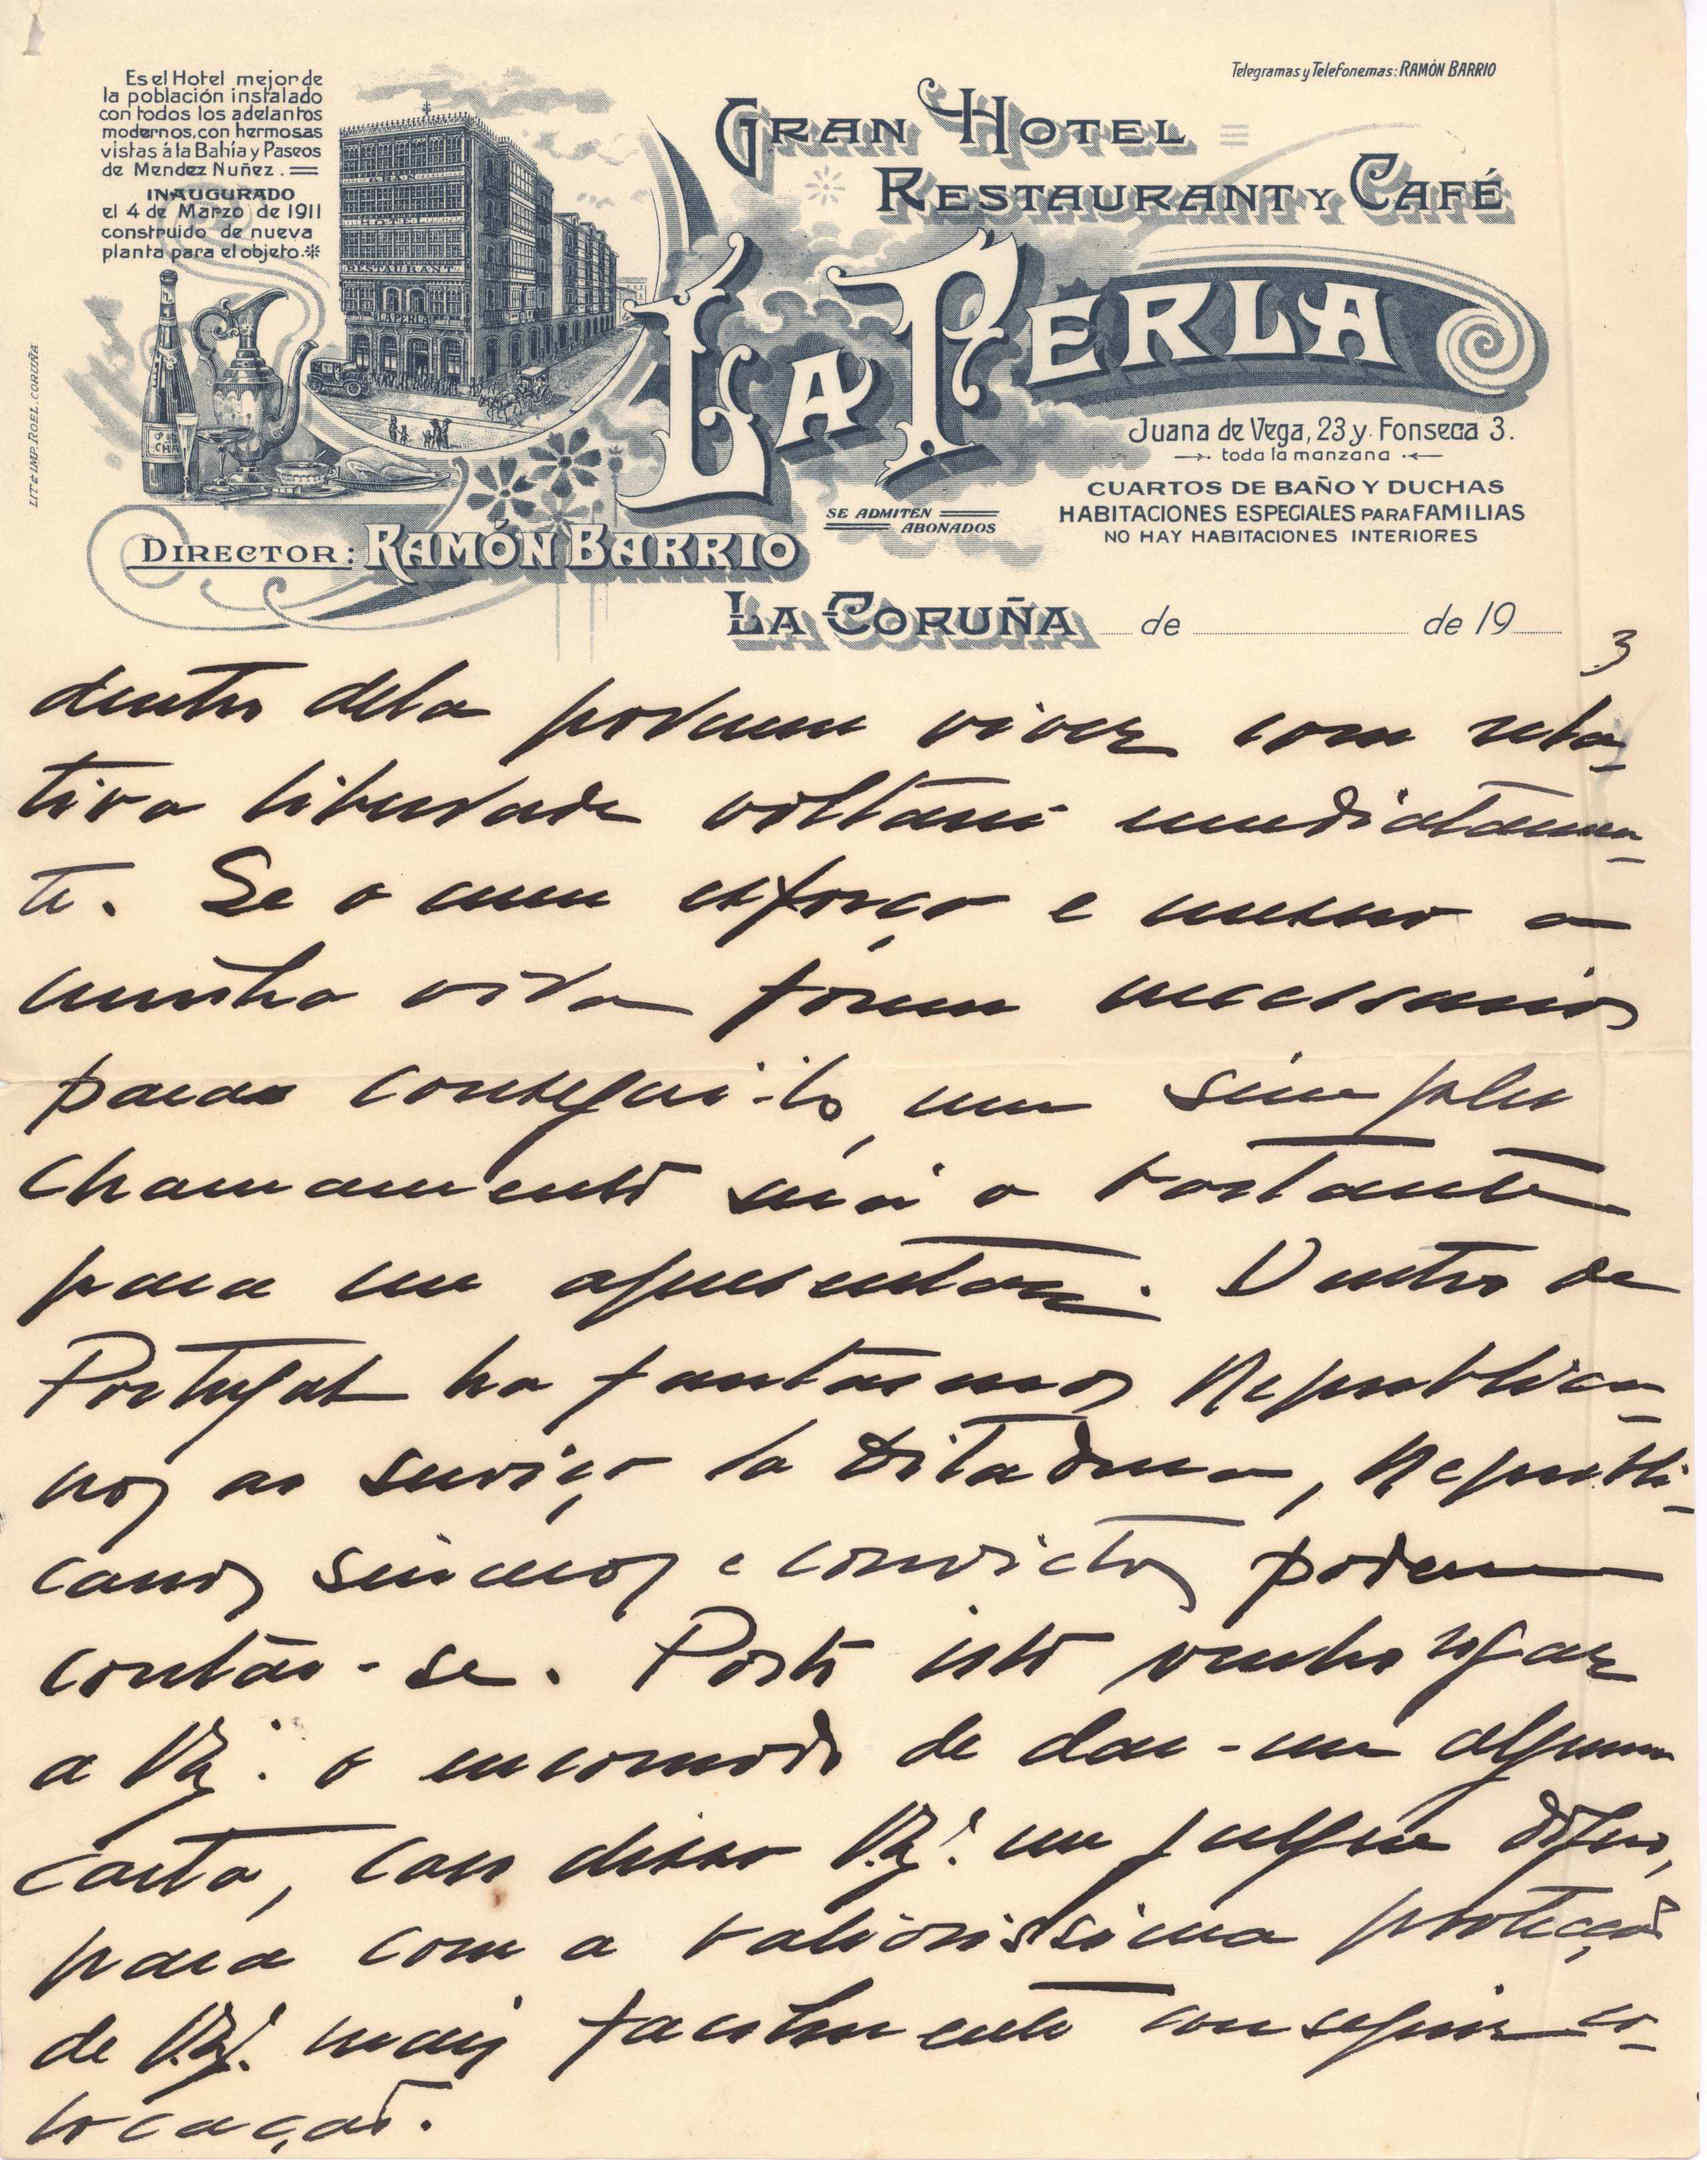 Es el Hotel mejor de
la población instalado
con todos los adelantos
modernos, con hermosas
vistas á la Bahía y Paseos
de Mendez Nuñez.
INAUGURADO
el 4 de Marzo de 1911
construido de nueva
planta para el objeto.
Telegramas y Telefonemas: RAMÓN BARRIO
GRAN HOTEL
RESTAURANT Y CAFÉ
LA PERLA
GRAN
HOTEL
RESTAURANT
LA PERLA
LIT. e IMP. ROEL. CORUÑA
Juana de Vega, 23 y Fonseca 3.
toda la manzana
CUARTOS DE BAÑO Y DUCHAS
HABITACIONES ESPECIALES PARA FAMILIAS
NO HAY HABITACIONES INTERIORES
SE ADMITEN
ABONADOS
DIRECTOR: RAMÓN BARRIO
LA CORUÑA de de 19
3
dentro dela poderem viver com rela-
tiva liberdade voltarei imediatamen-
te. Se o meu esforço e mesmo a
minha vida forem necessarios
para consegui-lo, um simples
chamamento será o bastante
para me apresentar. Dentro de
Portugal ha fantasmas Republica-
nos ao serviço da Ditadura, Republi-
canos sinceros e convictos podem
contár-se. Posto isto venho rogar
a V. Ex.ª o incomodo de dar-me alguma
carta, caso disso V. Ex.ª me julgue digno,
para com a valiosissima proteção
de V. Ex.ª mais facilmente conseguir co-
locação.